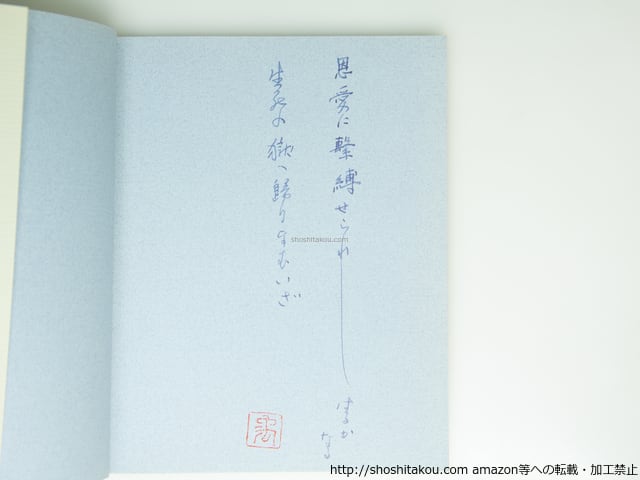 恩愛に繫縛せられしはるかなる
生死の獄へ歸りなむいざ
shoshitakou.com
http://shoshitakou.com amazon等への転載・加工禁止